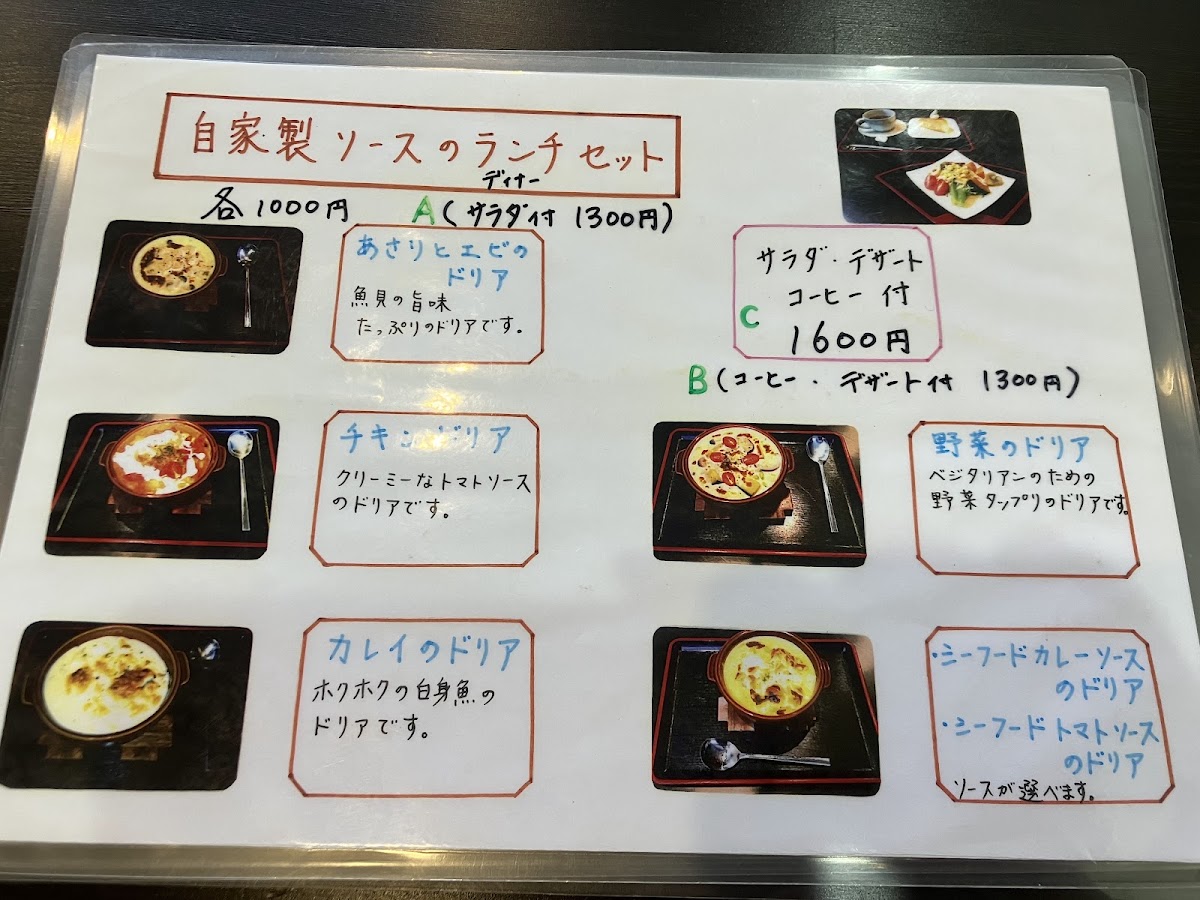 自家製ソースのランチセット
ディナー
各1000円 A(サラダ付 1300円)
あさりとエビの
ドリア
魚貝の旨味
たっぷりのドリアです。
サラダ・デザート
コーヒー付
C 1600円
B(コーヒー・デザート付 1300円)
チキンドリア
クリーミーなトマトソース
のドリアです。
野菜のドリア
ベジタリアンのための
野菜タンプリのドリアです。
カレイのドリア
ホクホクの白身魚の
ドリアです。
・シーフードカレーソース
のドリア
・シーフードトマトソース
のドリア
ソースが選べます。